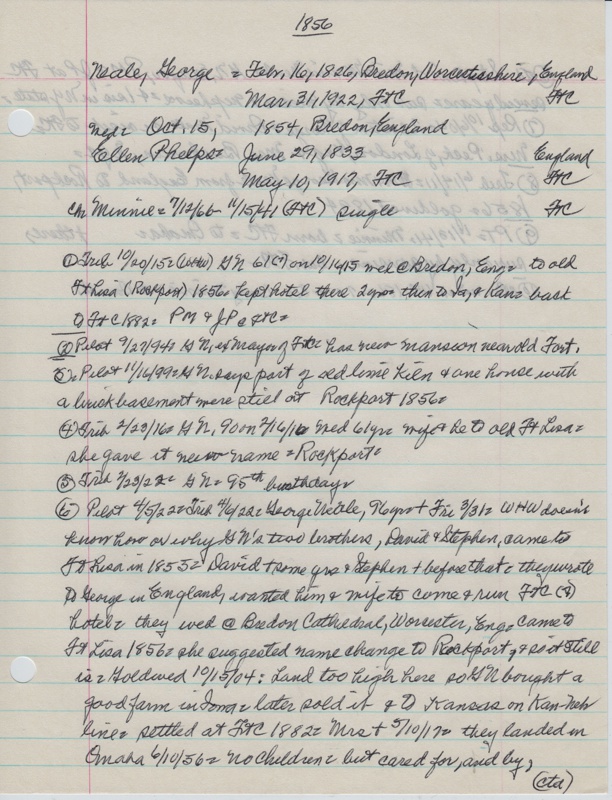 1856
Neale, George = Feb, 16, 1826, Bredon, Worcestershire, England
Mar, 31, 1922, FtC FtC
wed = Oct, 15, 1854, Bredon, England
Ellen Phelps = June 29, 1833 England
May 10, 1917, FtC FtC
Ch Minnie = 7/12/66 - 11/15/41 (FtC) single FtC
① Trib 10/20/15 = (WHW) GN 61(?) on 10/16/15 wed @ Bredon, Eng = to old
Ft Lisa (Rockport) 1856 = kept hotel there 2 yrs = then to Ia, & Kan = back
to FtC 1882 = PM & JP @ FtC =
② Pilot 9/27/94 = GN, ex Mayor of FtC has new mansion near old Fort,
③ Pilot 11/16/99 = GN, says part of old lime kiln & one house with
a brick basement were still at Rockport 1856 =
④ Trib 2/23/16 = GN, 90 on 2/16/16 wed 61 yrs = wife & he to old Ft Lisa =
she gave it new name = Rockport =
⑤ Trib 2/23/22 = GN = 95th birthday =
⑥ Pilot 4/5/22 = Trib 4/6/22 = George Neale, 96 yrs + Fri 3/31 = WHW doesn't
know how or why GN's two brothers, David & Stephen, came to
Ft Lisa in 1855 = David + some yrs & Stephen + before that = they wrote
to George in England, wanted him & wife to come & run FtC (?)
hotel = they wed @ Bredon Cathedral, Worcester, Eng = came to
Ft Lisa 1856 = she suggested name change to Rockport, & so it still
is = Gold wed 10/15/04 : Land too high here so GN bought a
good farm in Iowa = later sold it & to Kansas on Kan-Neb
line = settled at FtC 1882 = Mrs + 5/10/17 = they landed in
Omaha 6/10/56 = no children = but cared for, and by,
(ctd)